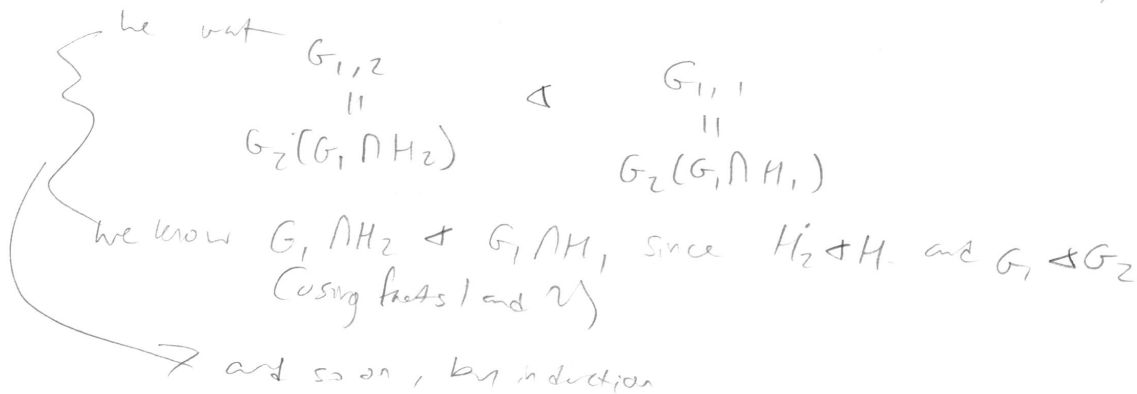 we want
G₁,₂ ◁ G₁,₁
|| ||
G₂(G₁∩H₂) G₂(G₁∩H₁)
we know G₁∩H₂ ◁ G₁∩H₁ since H₂◁H and G₁ ◁G₂
(using facts 1 and 2)
→ and so on, by induction